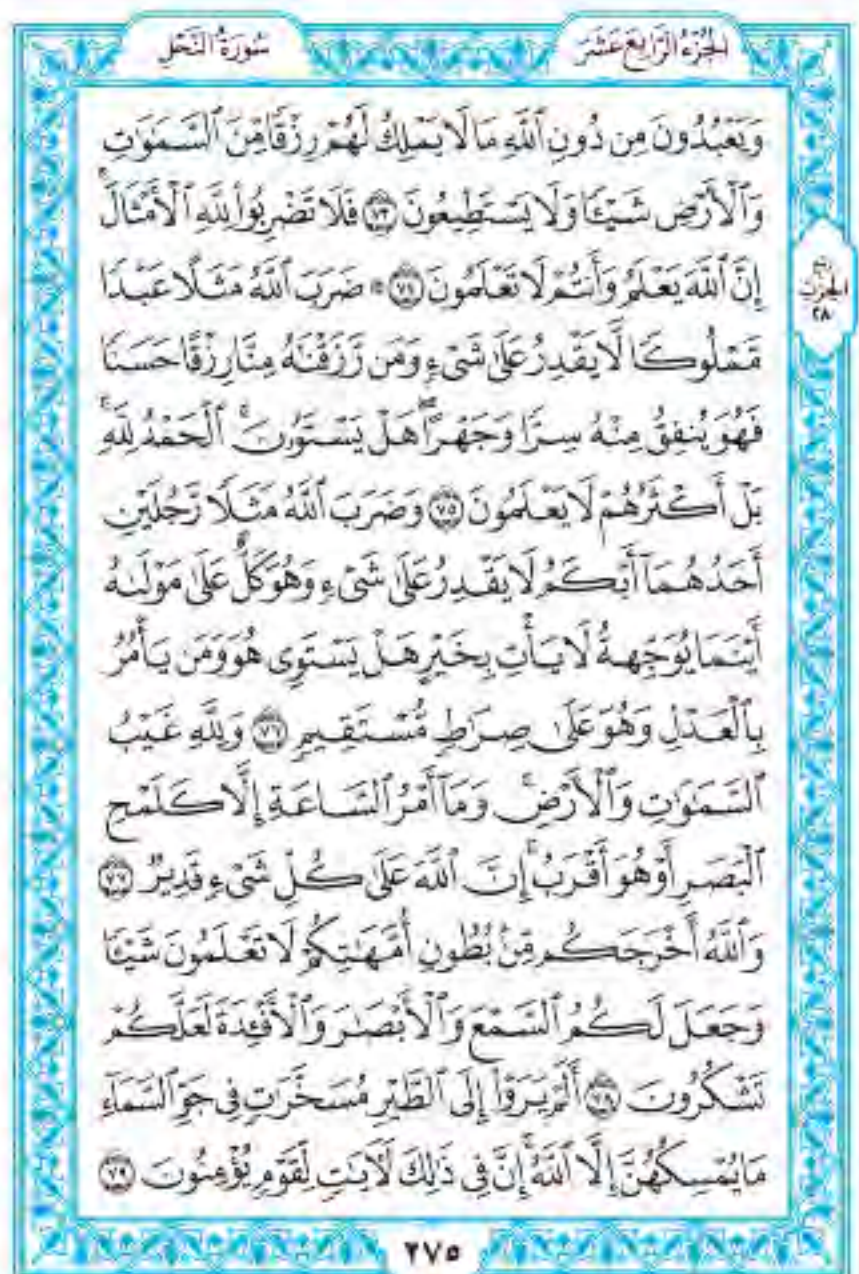 الجزء الرابع عشر
سورة النحل
وَيَعْبُدُونَ مِن دُونِ ٱللَّهِ مَا لَا يَمْلِكُ لَهُمْ رِزْقًا مِّنَ ٱلسَّمَٰوَٰتِ
وَٱلْأَرْضِ شَيْـًٔا وَلَا يَسْتَطِيعُونَ ٧٣ فَلَا تَضْرِبُوا۟ لِلَّهِ ٱلْأَمْثَالَ ۚ
إِنَّ ٱللَّهَ يَعْلَمُ وَأَنتُمْ لَا تَعْلَمُونَ ٧٤ ۞ ضَرَبَ ٱللَّهُ مَثَلًا عَبْدًا
مَّمْلُوكًا لَّا يَقْدِرُ عَلَىٰ شَىْءٍ وَمَن رَّزَقْنَٰهُ مِنَّا رِزْقًا حَسَنًا
فَهُوَ يُنفِقُ مِنْهُ سِرًّا وَجَهْرًا ۖ هَلْ يَسْتَوُۥنَ ۚ ٱلْحَمْدُ لِلَّهِ ۚ
بَلْ أَكْثَرُهُمْ لَا يَعْلَمُونَ ٧٥ وَضَرَبَ ٱللَّهُ مَثَلًا رَّجُلَيْنِ
أَحَدُهُمَآ أَبْكَمُ لَا يَقْدِرُ عَلَىٰ شَىْءٍ وَهُوَ كَلٌّ عَلَىٰ مَوْلَىٰهُ
أَيْنَمَا يُوَجِّههُّ لَا يَأْتِ بِخَيْرٍ هَلْ يَسْتَوِى هُوَ وَمَن يَأْمُرُ
بِٱلْعَدْلِ وَهُوَ عَلَىٰ صِرَٰطٍ مُّسْتَقِيمٍ ٧٦ وَلِلَّهِ غَيْبُ
ٱلسَّمَٰوَٰتِ وَٱلْأَرْضِ ۚ وَمَآ أَمْرُ ٱلسَّاعَةِ إِلَّا كَلَمْحِ
ٱلْبَصَرِ أَوْ هُوَ أَقْرَبُ ۚ إِنَّ ٱللَّهَ عَلَىٰ كُلِّ شَىْءٍ قَدِيرٌ ٧٧
وَٱللَّهُ أَخْرَجَكُم مِّنۢ بُطُونِ أُمَّهَٰتِكُمْ لَا تَعْلَمُونَ شَيْـًٔا
وَجَعَلَ لَكُمُ ٱلسَّمْعَ وَٱلْأَبْصَٰرَ وَٱلْأَفْـِٔدَةَ لَعَلَّكُمْ
تَشْكُرُونَ ٧٨ أَلَمْ يَرَوْا۟ إِلَى ٱلطَّيْرِ مُسَخَّرَٰتٍ فِى جَوِّ ٱلسَّمَآءِ
مَا يُمْسِكُهُنَّ إِلَّا ٱللَّهُ ۗ إِنَّ فِى ذَٰلِكَ لَءَايَٰتٍ لِّقَوْمٍ يُؤْمِنُونَ ٧٩
الحزب
٢٨
٢٧٥